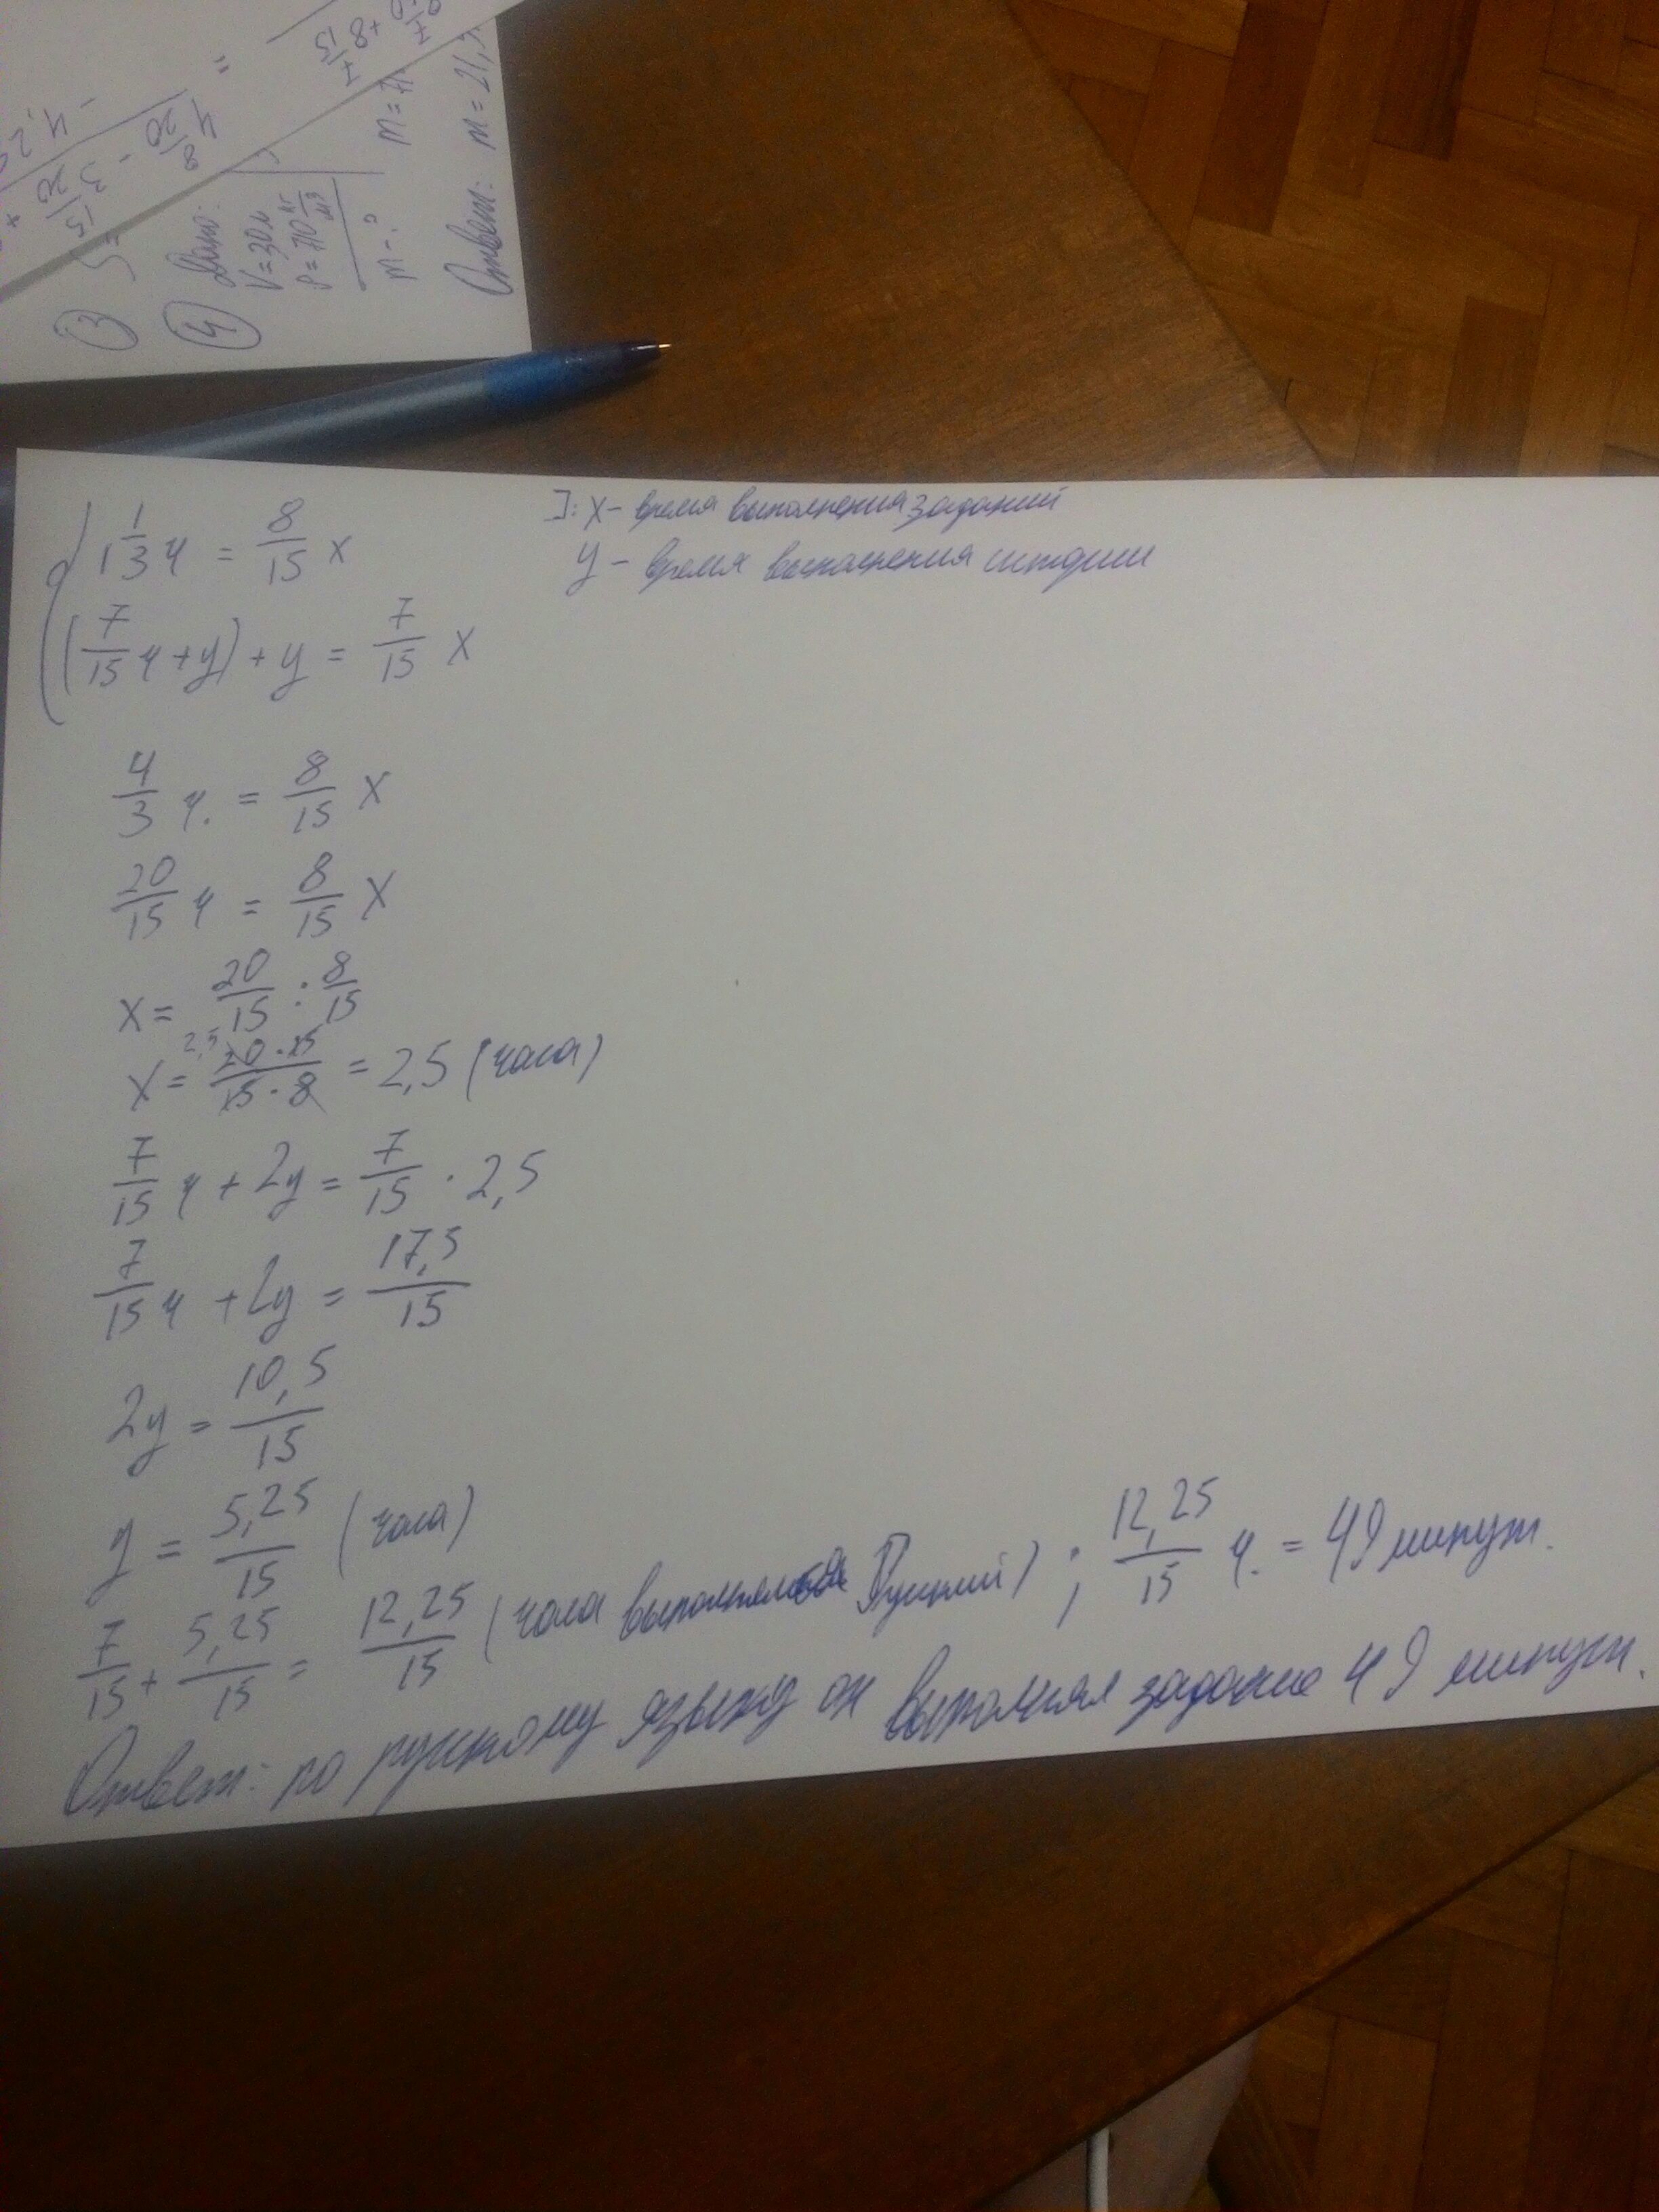 1 1/3 ч = 8/15 x
]: x - время выполнения заданий
y - время выполнения истории
(7/15 ч + y) + y = 7/15 x
4/3 ч. = 8/15 x
20/15 ч = 8/15 x
x = 20/15 : 8/15
x = 20·15/15·8 = 2,5 (часа)
7/15 ч + 2y = 7/15 · 2,5
7/15 ч + 2y = 17,5/15
2y = 10,5/15
y = 5,25/15 (часа)
7/15 + 5,25/15 = 12,25/15 (часа Русский) ; 12,25/15 ч. = 49 минут.
Ответ: по русскому языку он выполнял задание 49 минут.
3
4
Дано:
V = 30л
ρ = 710 кг/м3
m - ?
Ответ: m = 21,